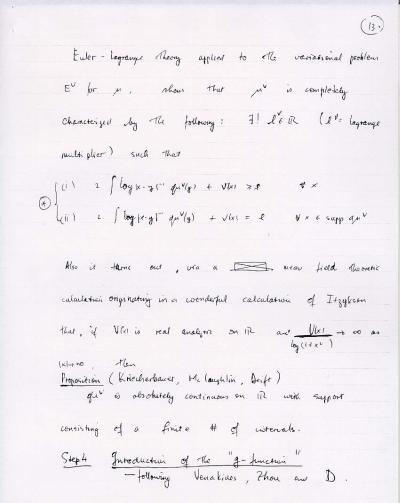 13.
Euler-Lagrange theory applied to the variational problem
E^V for μ, show that μ^V is completely
characterized by the following: ∃! l^V ∈ ℝ (l^V = Lagrange
multiplier) such that
(i) 2 ∫ log|x-y|^{-1} dμ^V(y) + V(x) ≥ l ∀ x
(ii) 2 ∫ log|x-y|^{-1} dμ^V(y) + V(x) = l ∀ x ∈ supp dμ^V
Also it turns out, via a mean field theoretic
calculation originating in a wonderful calculation of Itzykson
that, if V(x) is real analytic on ℝ and V(x)/log(1+x²) → ∞ as
|x|→∞, then
Proposition (Kriecherbauer, McLaughlin, Deift)
dμ^V is absolutely continuous on ℝ with support
consisting of a finite # of intervals.
Step 4 Introduction of the "g-function"
— following Venakides, Zhou and D.